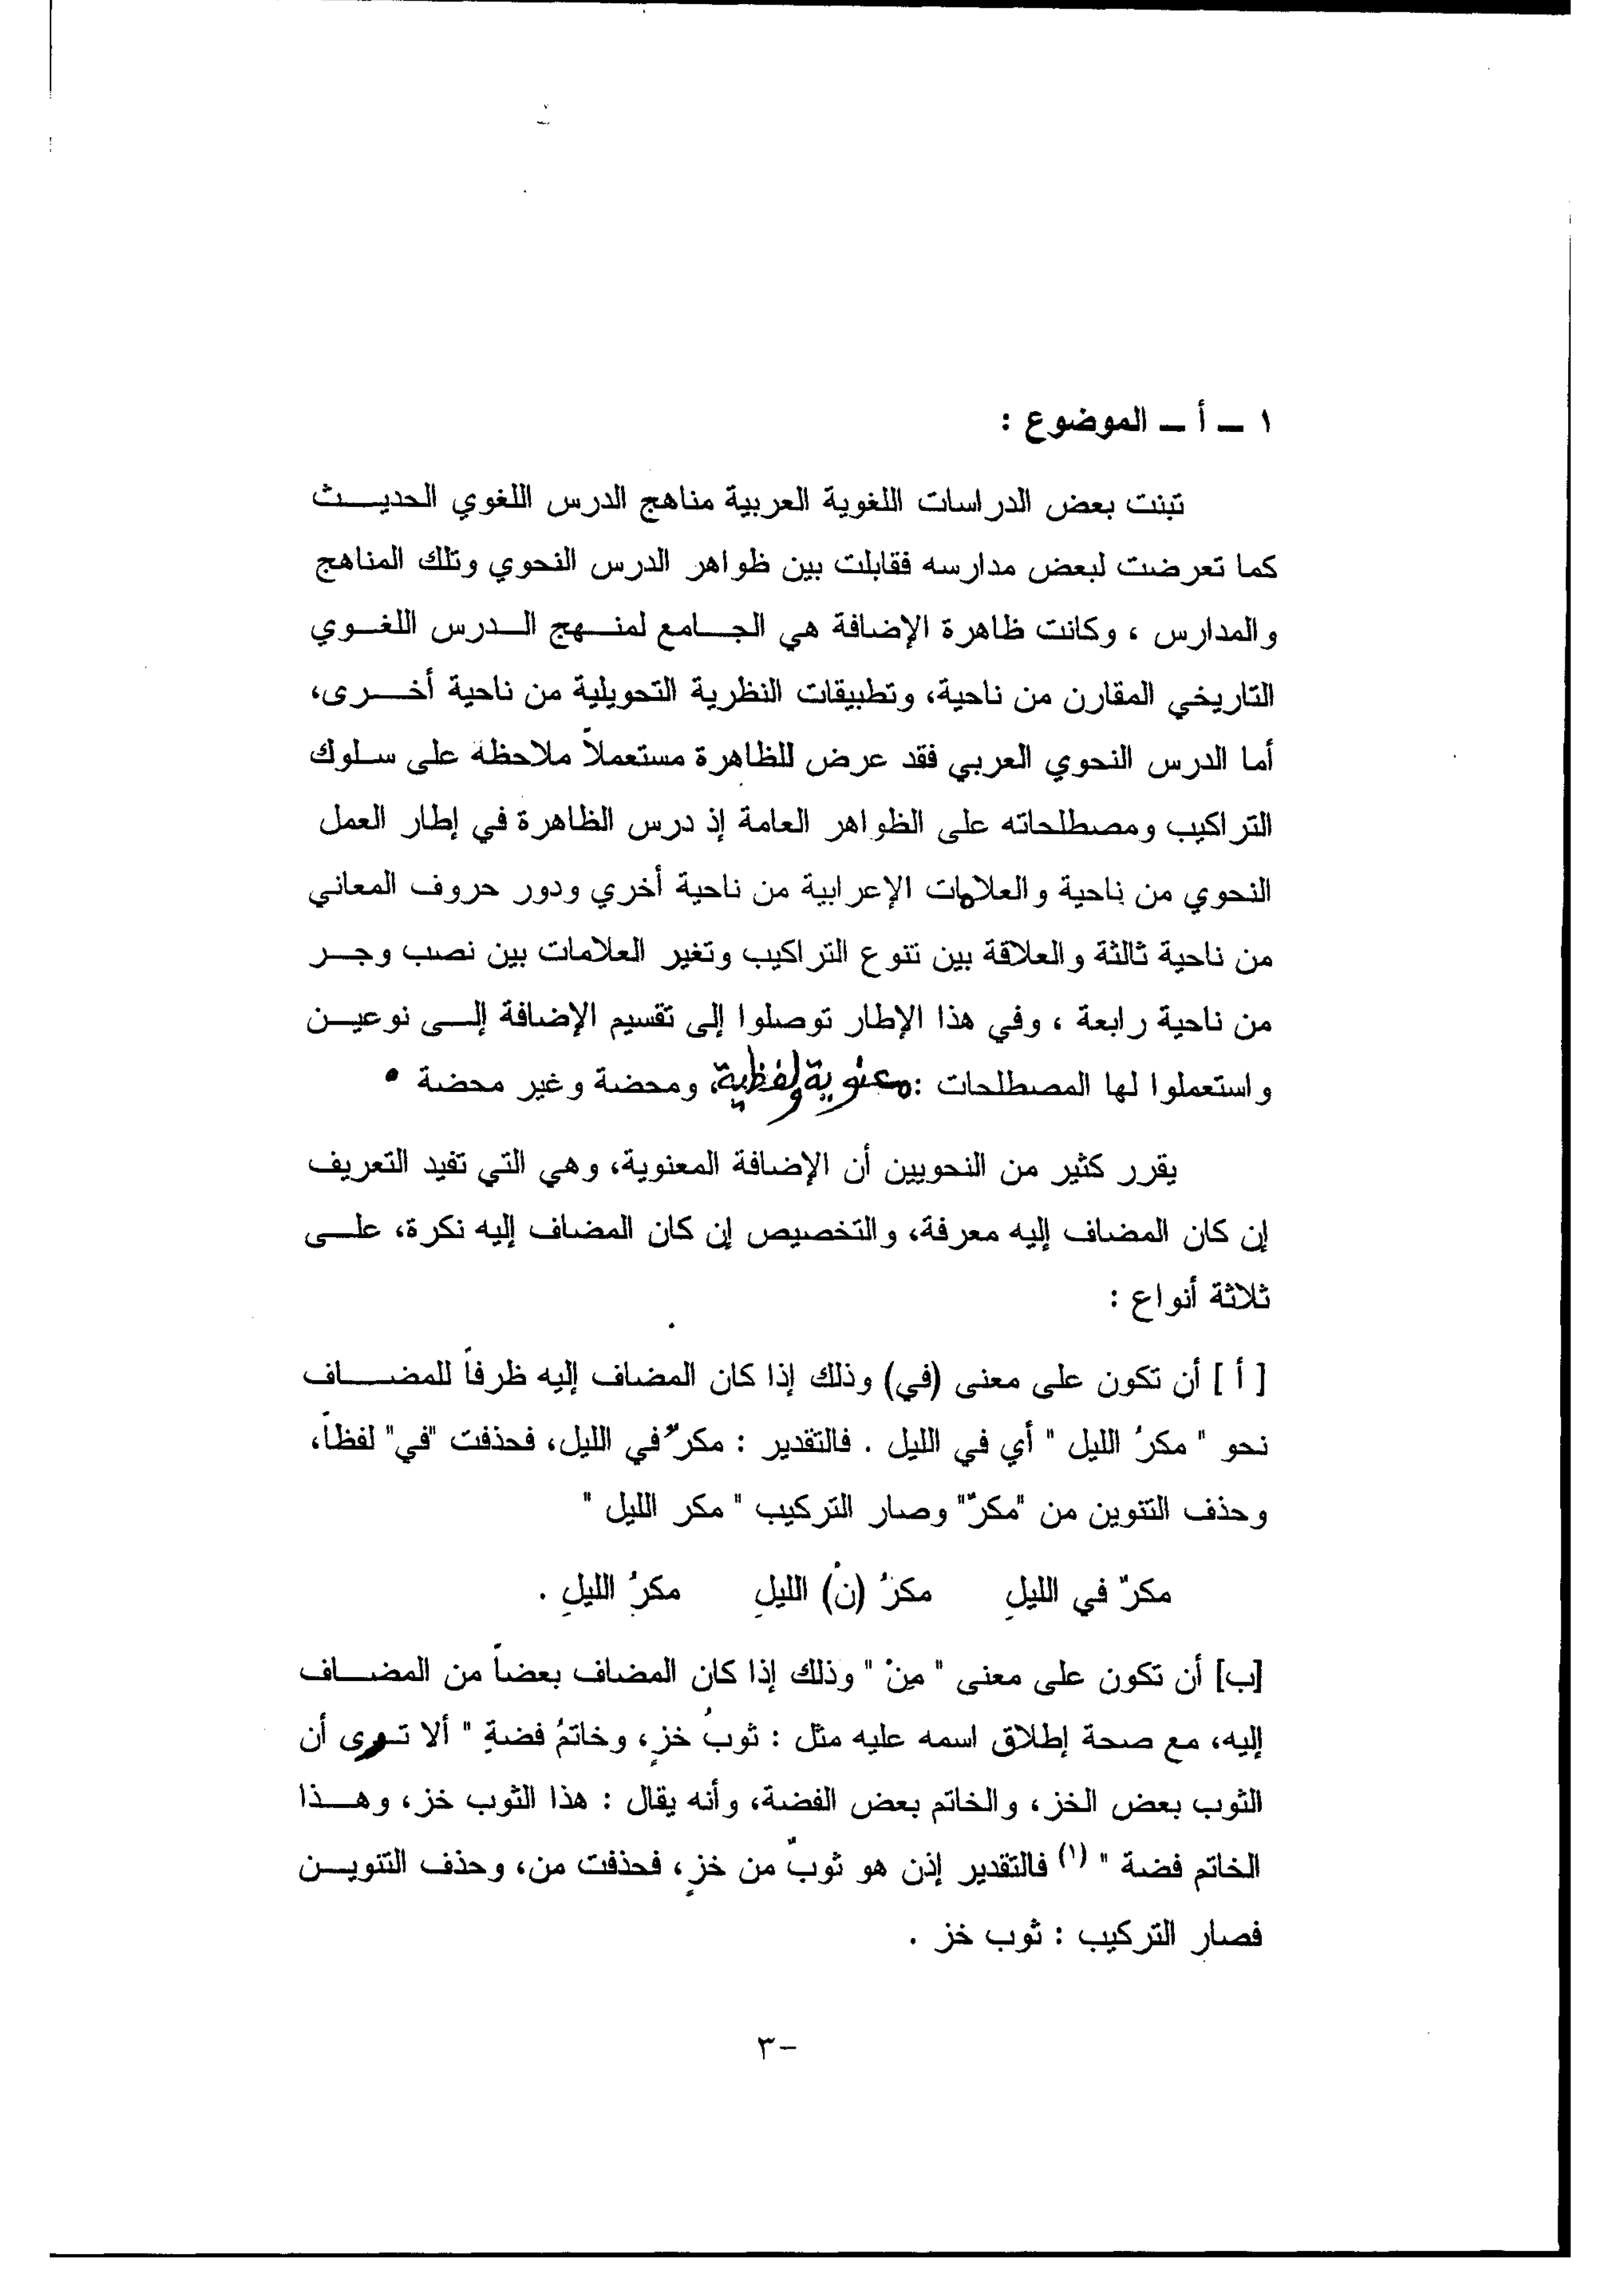 ١ – أ – الموضوع :
تبنت بعض الدراسات اللغوية العربية مناهج الدرس اللغوي الحديث
كما تعرضت لبعض مدارسه فقابلت بين ظواهر الدرس النحوي وتلك المناهج
والمدارس ، وكانت ظاهرة الإضافة هي الجامع لمنهج الدرس اللغوي
التاريخي المقارن من ناحية، وتطبيقات النظرية التحويلية من ناحية أخرى،
أما الدرس النحوي العربي فقد عرض للظاهرة مستعملاً ملاحظة على سلوك
التراكيب ومصطلحاته على الظواهر العامة إذ درس الظاهرة في إطار العمل
النحوي من ناحية والعلامات الإعرابية من ناحية أخري ودور حروف المعاني
من ناحية ثالثة والعلاقة بين تنوع التراكيب وتغير العلامات بين نصب وجر
من ناحية رابعة ، وفي هذا الإطار توصلوا إلى تقسيم الإضافة إلى نوعين
واستعملوا لها المصطلحات : معنوية ولفظية، ومحضة وغير محضة .
يقرر كثير من النحويين أن الإضافة المعنوية، وهي التي تفيد التعريف
إن كان المضاف إليه معرفة، والتخصيص إن كان المضاف إليه نكرة، على
ثلاثة أنواع :
[ أ ] أن تكون على معنى (في) وذلك إذا كان المضاف إليه ظرفاً للمضاف
نحو " مكرُ الليل " أي في الليل . فالتقدير : مكرٌ في الليل، فحذفت "في" لفظاً،
وحذف التنوين من "مكرٌ" وصار التركيب " مكر الليل "
مكرٌ في الليلِ مكرُ (نْ) الليلِ مكرُ الليلِ .
[ب] أن تكون على معنى " مِنْ " وذلك إذا كان المضاف بعضاً من المضاف
إليه، مع صحة إطلاق اسمه عليه مثل : ثوبُ خزٍ، وخاتمُ فضةٍ " ألا ترى أن
الثوب بعض الخز، والخاتم بعض الفضة، وأنه يقال : هذا الثوب خز، وهذا
الخاتم فضة " (١) فالتقدير إذن هو ثوبٌ من خزٍ، فحذفت من، وحذف التنوين
فصار التركيب : ثوب خز .
٣-